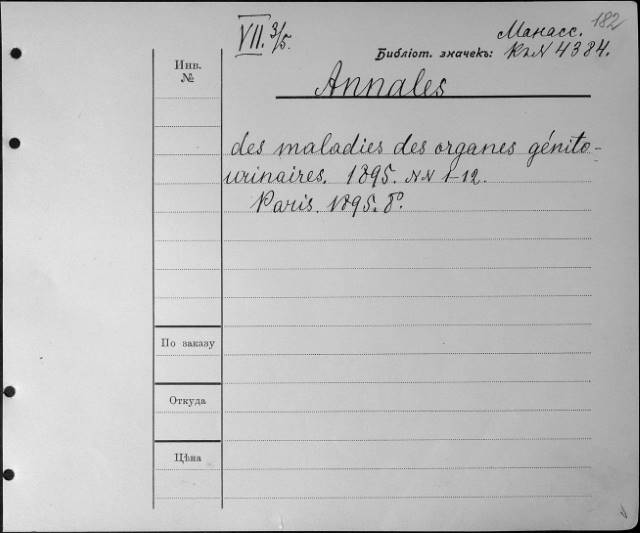 182
VII. 3/5.
Манасс.
Библіот. значекъ: К2N 4384.
Инв. №
Annales
des maladies des organes génito-
urinaires. 1895. NN 1-12.
Paris. 1895. 8°.
По заказу
Откуда
Цѣна